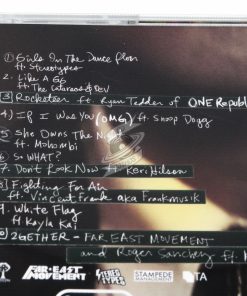 ① Girls In The Dance Floor
ft. Stereotypes
2. Like A G6
ft. The Cataracs & Dev
3 Rocketeer ft. Ryan Tedder of ONE Republ
4) If I Was You (OMG) ft Snoop Dogg
5 She Owns The Night
ft. Mohombi
6 So WHAT?
7. Don't Look Now ft. Keri Hilson
8 Fighting For Air
ft. Vincent Frank aka Frankmusik
9. White Flag
ft Kayla Kai
0) 2GETHER - FAR EAST MOVEMENT
and Roger Sanchez ft.
FAR EAST MOVEMENT
STEREOTYPES
STAMPEDE
MANAGEMENT
TA